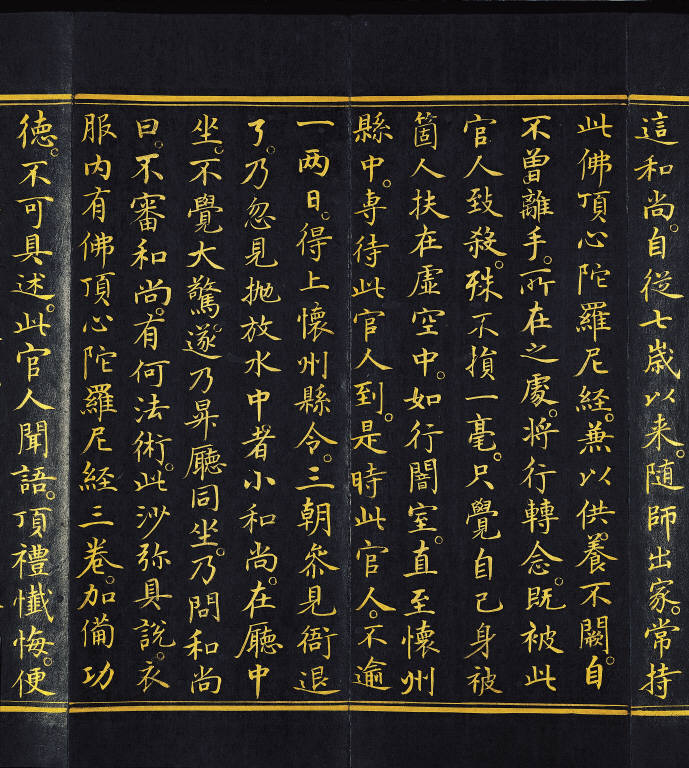 這和尚。自從七歲以来。随師出家。常持
此佛頂心陀羅尼經。兼以供養不闕。自
不曾離手。所在之處。將行轉念。既被此
官人致殺。殊不損一毫。只覺自己身被
箇人扶在虛空中。如行闇室。直至懷州
縣中。専待此官人到。是時此官人。不逾
一两日。得上懷州縣令。三朝叅見衙退
了。乃忽見抛放水中者小和尚。在廳中
坐。不覺大驚。遂乃昇廳同坐。乃問和尚
曰。不審和尚。有何法術。此沙弥具說。衣
服内有佛頂心陀羅尼経三卷。加備功
德。不可具述。此官人聞語。頂禮懺悔。便